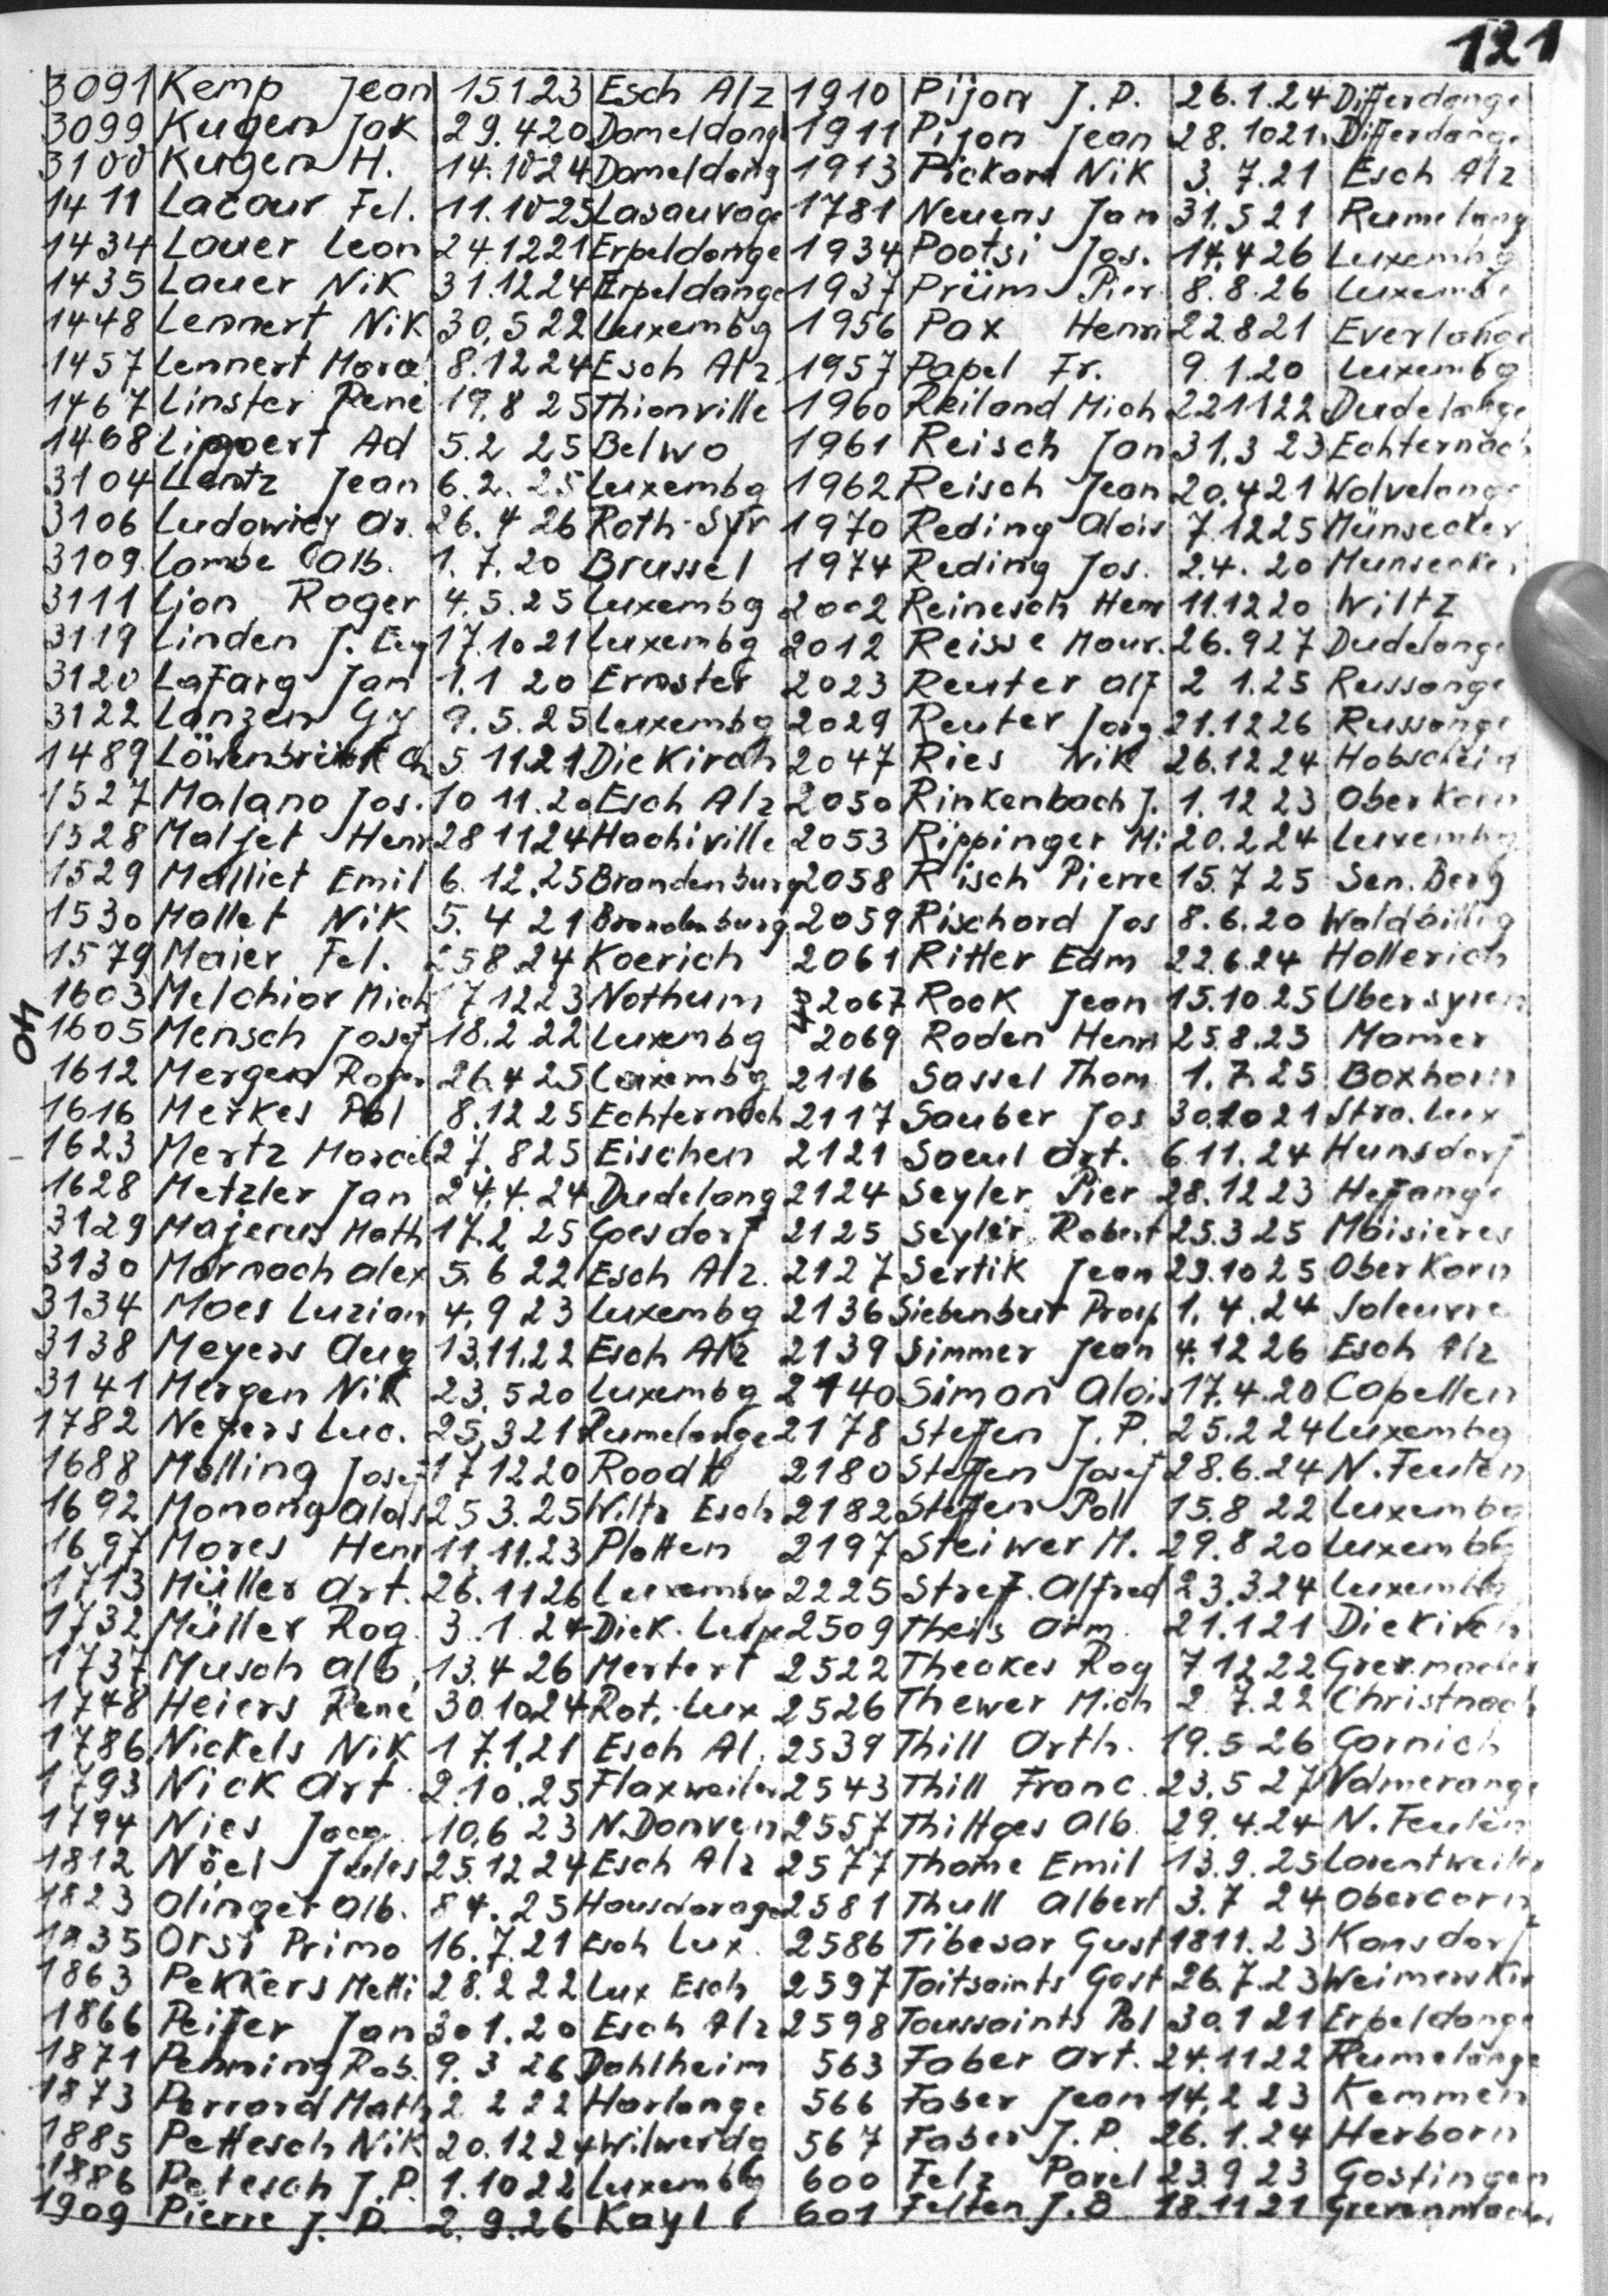 121
3091 Kemp Jean 15.1.23 Esch Alz 1910 Pijon J.P. 26.1.24 Differdange
3099 Kugen Jak 29.420 Domeldang 1911 Pijon Jean 28.1021. Differdange
3100 Kugen H. 14.1024 Domeldang 1913 Pickard NiK 3.7.21 Esch Alz
1411 Lacour Fel. 11.1025 Lasauvage 1781 Neuens Jan 31.521 Rumelang
1434 Lauer Leon 24.1221 Erpeldange 1934 Pootsi Jos. 14.426 Luxembg
1435 Lauer NiK 31.1224 Erpeldange 1937 Prüm Pier 8.8.26 Luxembg
1448 Lennert NiK 30.522 Luxembg 1956 Pax Henri 22.821 Everlange
1457 Lennert Marcel 8.1224 Esch Alz 1957 Papel Fr. 9.1.20 Luxembg
1467 Linster Rene 19.8 25 Thionville 1960 Reiland Mich 221122 Dudelange
1468 Lippert Ad 5.2 25 Belwo 1961 Reisch Jan 31.3 23 Echternach
3104 Lentz Jean 6.2.25 Luxembg 1962 Reisch Jean 20.421 Wolvelange
3106 Ludowicy Ar. 26.4 26 Roth-Syr 1970 Reding Alois 7.1225 Münsecker
3109 Lombe Alb. 1.7.20 Brussel 1974 Reding Jos. 2.4.20 Munsecker
3111 Lion Roger 4.5.25 Luxembg 2002 Reinesch Henr 11.1220 Wiltz
3119 Linden J. Eug 17.1021 Luxembg 2012 Reisse Maur. 26.927 Dudelange
3120 Lafarg Jan 1.1 20 Ernster 2023 Reuter alf 2 1.25 Russange
3122 Lanzen Gy 9.5.25 Luxembg 2029 Reuter Jorg 21.1226 Russange
1489 Löwenbrück Ch 5 11.21 DieKirch 2047 Ries NiK 26.12 24 Hobscheid
1527 Malano Jos. 10 11.20 Esch Alz 2050 Rinkenbach J. 1.12 23 OberKorn
1528 Maljet Henr 28 1124 Hachiville 2053 Rippinger Mi 20.2.24 Luxembg
1529 Malliet Emil 6.12.25 Brandenburg 2058 Risch Pierre 15.7 25 Sen. Berg
1530 Mallet NiK 5.4 21 Brandenburg 2059 Rischard Jos 8.6.20 Waldbillig
1579 Maier Fel. 258.24 Koerich 2061 Ritter Edm 22.6.24 Hollerich
1603 Melchior Mich 7 1223 Nothum 2067 RooK Jean 15.10.25 Ubersyren
40
1605 Mensch Josef 18.2.22 Luxembg 2069 Roden Henri 25.8.23 Mamer
1612 Mergen Roger 26.425 Luxembg 2116 Sassel Thom 1.7.25 Boxhorn
1616 Merkes Pol 8.12 25 Echternach 2117 Sauber Jos 30.1021 Stra. Lux
1623 Mertz Marcel 27.825 Eischen 2121 Saeul Art. 6.11.24 Hunsdorf
1628 Metzler Jan 24.4.24 Dudelang 2124 Seyler Pier 28.12 23 Heffange
3129 Majerus Math 17.2 25 Goesdorf 2125 Seyler Robert 25.3 25 Moisieres
3130 Marnach alex 5.6 22 Esch Alz. 2127 Sertik Jean 29.1025 OberKorn
3134 Moes Luzian 4.9 23 Luxembg 2136 Siebenburt Prosp 1.4.24 Soleuvre
3138 Meyers Aug 13.11.22 Esch Alz 2139 Simmer Jean 4.12 26 Esch Alz
3141 Mergen NiK 23.520 Luxembg 2140 Simon Alois 17.4.20 Capellen
1782 Neyers Luc. 25.321 Rumelange 2178 Steffen J.P. 25.2 24 Luxembg
1688 Molling Josef 17 1220 Roodt 2180 Steffen Josef 28.6.24 N. Feulen
1692 Monong Alois 25 3.25 Wiltz Esch 2182 Steffen Poll 15.8 22 Luxembg
1697 Mores Henr 11.11.23 Platten 2197 Steiwer M. 29.8 20 Luxembg
1713 Müller Art. 26.1126 Luxembg 2225 Stref. Alfred 23.324 Luxembg
1732 Müller Rog. 3.1.24 Diek. Lux 2509 Theis Arm. 21.121 Diekirch
1737 Musch Alb. 13.4 26 Mertert 2522 Theokes Rog 7.1222 Grev.macher
1748 Heiers Rene 30.1024 Rot. Lux 2526 Thewer Mich 2 7.22 Christnach
1786 Nickels NiK 17.1.21 Esch Al. 2539 Thill Arth. 19.526 Garnich
1793 NicK Art 2.10.25 Flaxweiler 2543 Thill Franc. 23.527 Volmerange
1794 Nies Jacq. 10.6 23 N.Donven 2557 Thiltges Alb. 29.4.24 N. Feulen
1812 Nöel Jules 25.12 24 Esch Alz 2577 Thome Emil 13.9.25 Lorentweiler
1823 Olinget Alb. 84.25 2581 Thull Albert 3.7 24 Obercorn
1835 Orsi Primo 16.7.21 Esch Lux. 2586 Tibesar Gust 1811.23 Konsdorf
1863 Pekkers Metti 28.2 22 Lux Esch 2597 Toitsaints Gast 26.7.23
1866 Peiffer Jan 301.20 Esch Alz 2598 Toussaints Pol 30.1 21 Erpeldange
1871 Penning Rob. 9.3 26 Dahlheim 563 Faber Art. 24.1122 Rumelange
1873 Perrard Math 2 2 22 Harlange 566 Faber Jean 14.2 23 Kemmen
1885 Pettesch NiK 20.1224 Wilwerdg 567 Faber J.P. 26.1.24 Herborn
1886 Petesch J.P. 1.1022 Luxembg 600 Felz Pavel 23.9 23 Gostingen
1909 Pierre J.P. 2.9.26 Kayl 601 Felten J.B 18.1121 Grevenmacher